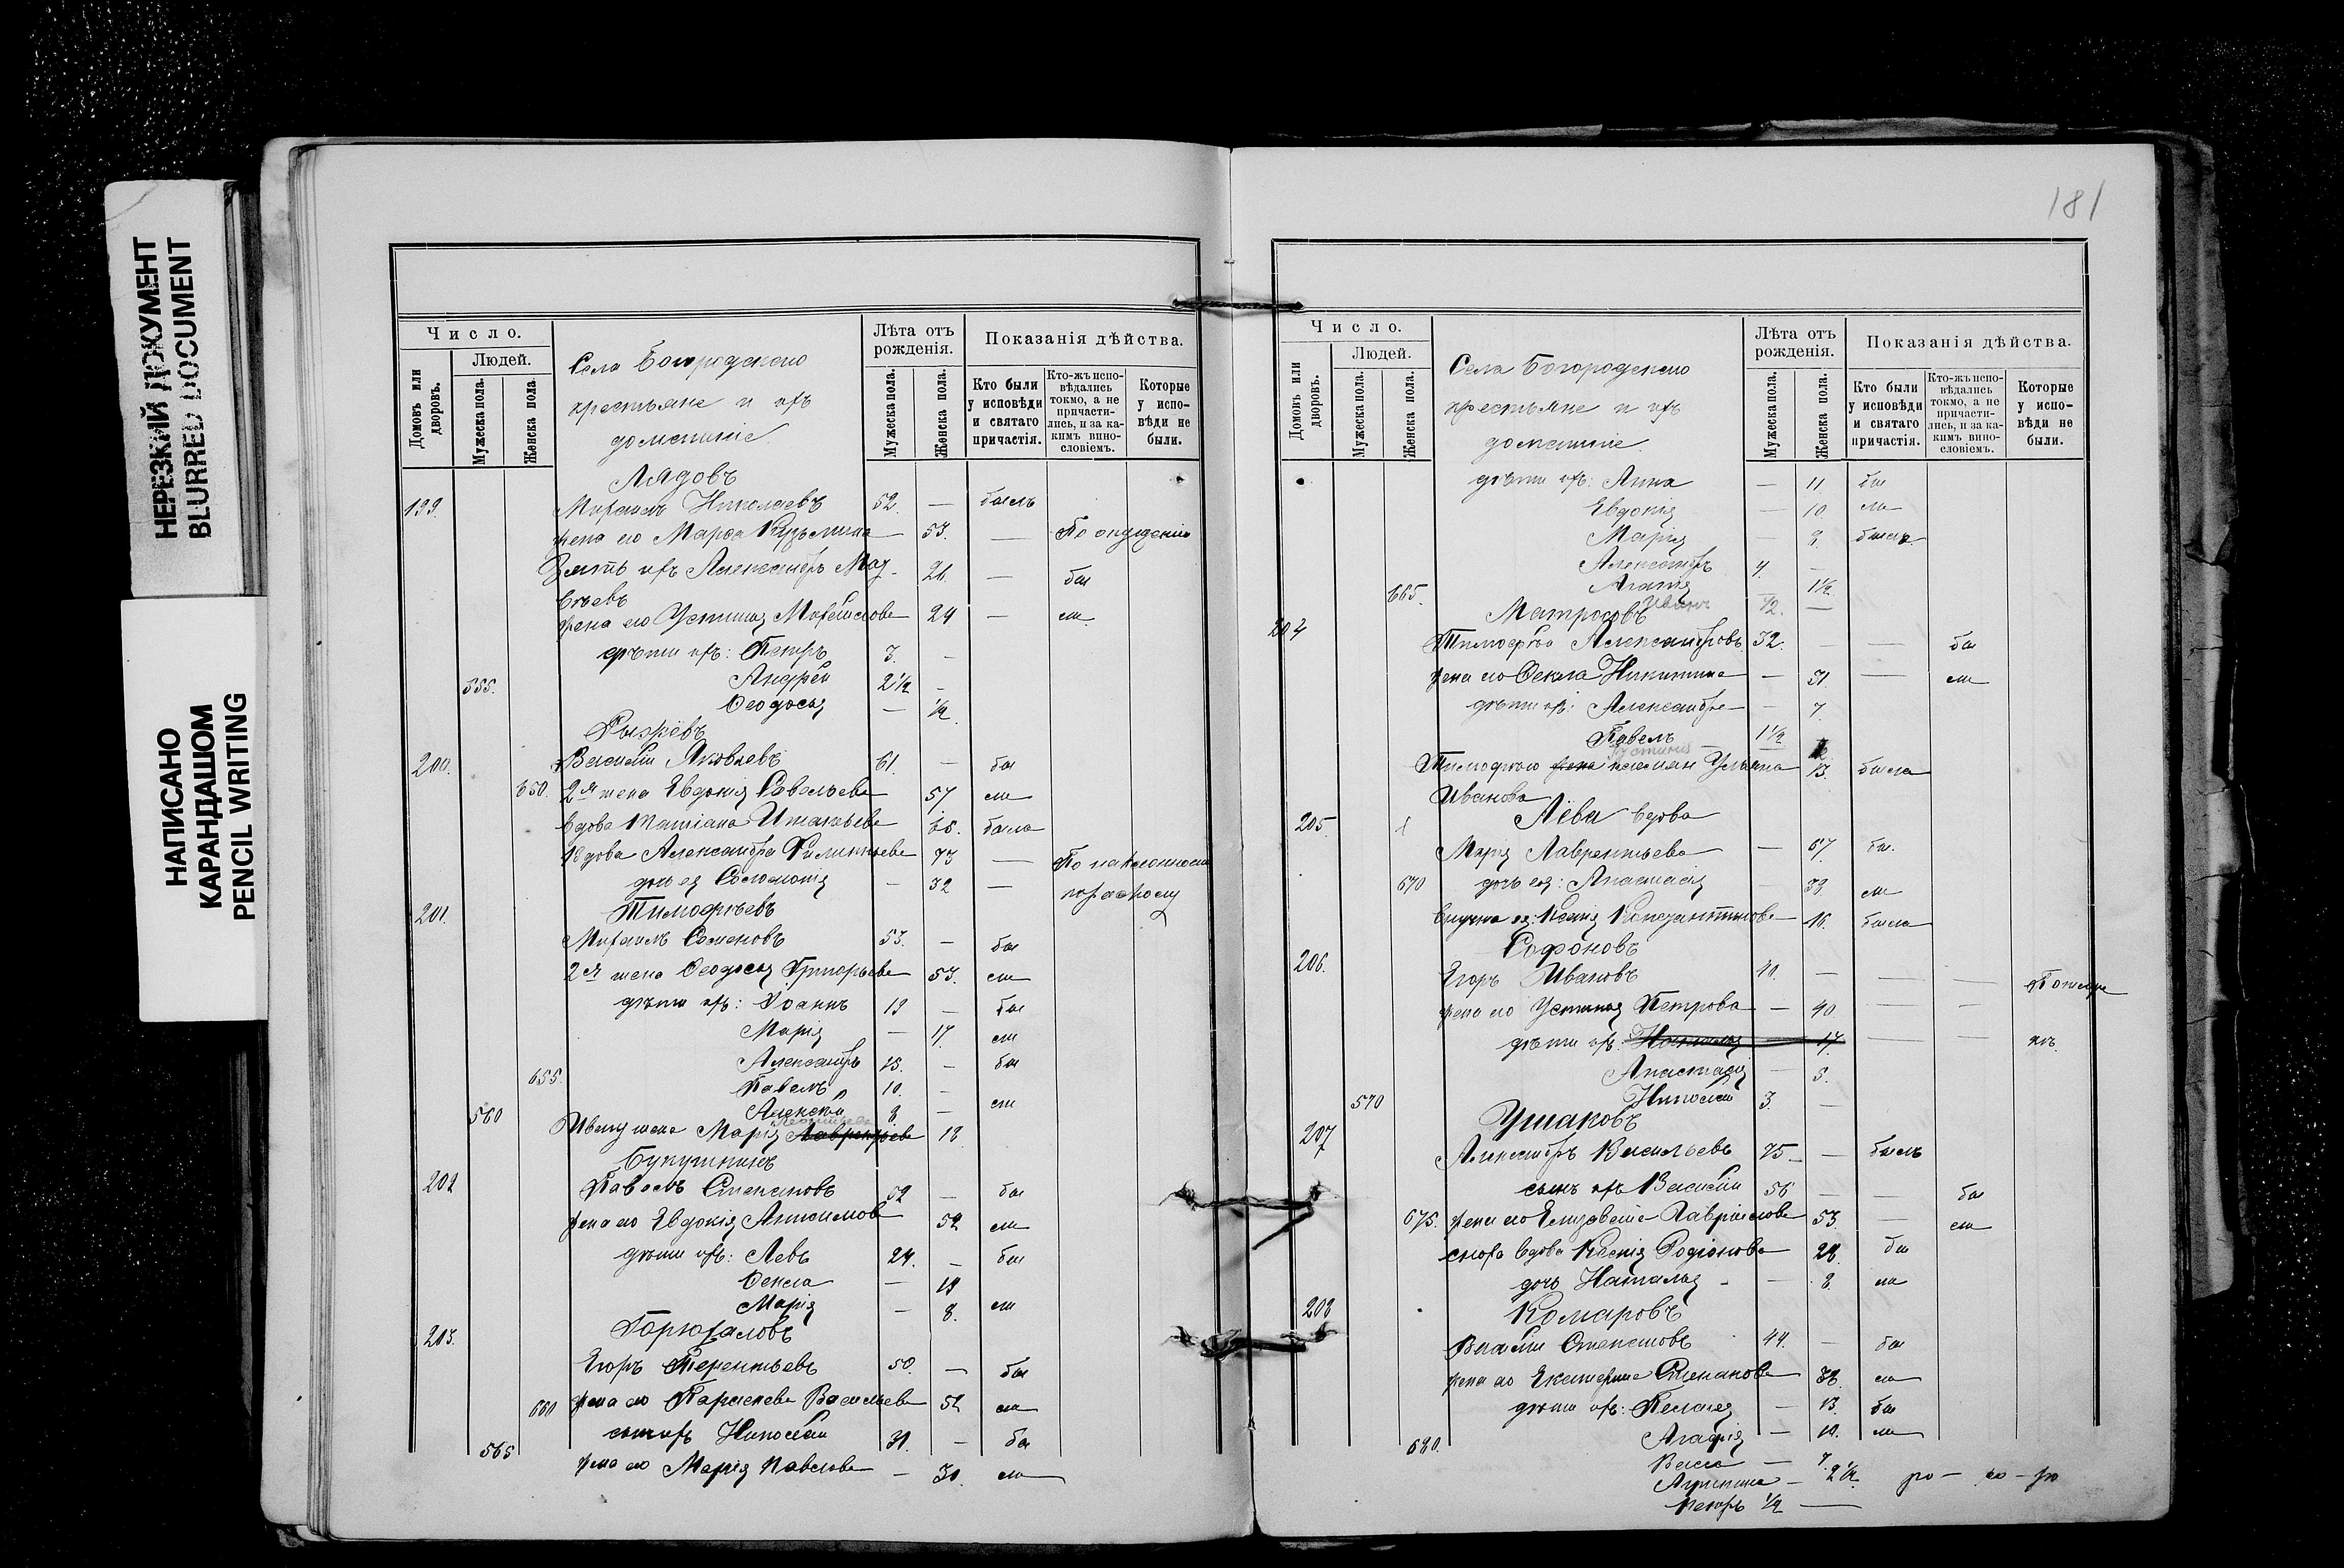 НЕРЕЗКИЙ ДОКУМЕНТ
BLURRED DOCUMENT
НАПИСАНО
КАРАНДАШОМ
PENCIL WRITING
Число.
Людей.
Домовъ или дворовъ.
Мужеска пола.
Женска пола.
Села Богородскаго
крестьяне и ихъ
домашніе.
Лѣта отъ рожденія.
Мужеска пола.
Женска пола.
Показанія дѣйства.
Кто были у исповѣди и святаго причастія.
Кто-жъ исповѣдались токмо, а не причастились, и за какимъ винословіемъ.
Которые у исповѣди не были.
Лядовъ
199. Михаилъ Николаевъ 52. — былъ
жена его Марѳа Кузьмина 53. — По опущенію
Зять ихъ Александръ Мат- 26. — бы
вѣевъ
жена его Устинья Михаилова 24 — ли
дѣти ихъ: Петръ 3. —
555. Андрей 2 1/2 —
Ѳеодосья — 1/2
Рыжевъ
200. Василій Яковлевъ 61. — бы
650. 2я жена Евдокія Савельева 57 ли
вдова Татіана 65. была
Вдова Александра Филиппьева 73 —
дочь ея Соломонія — 32 —
201. Тимофѣевъ
Михаилъ Семеновъ 53. — бы
2я жена Ѳеодосья Григорьева 53. ли
дѣти ихъ: Іоаннъ 19 — бы
Марія — 17. ли
Александръ 15. — бы
655. Павелъ 10. —
560 Алексѣй 8 — ли
Ивану жена Марія Лаврентьева 18
202
Павелъ Степановъ 52 — бы
жена его Евдокія Анисимова 52 ли
дѣти ихъ: Левъ 24. — бы
Ѳекла — 19
Марія — 8. ли
203. Горюхаловъ
Егоръ Терентьевъ 50. — бы
660 жена его Параскева Васильева 52 ли
565 сынъ ихъ Николай 31. — бы
жена его Марія Павлова — 30. ли
181
Число.
Людей.
Домовъ или дворовъ.
Мужеска пола.
Женска пола.
Села Богородскаго
крестьяне и ихъ
домашніе.
Лѣта отъ рожденія.
Мужеска пола.
Женска пола.
Показанія дѣйства.
Кто были у исповѣди и святаго причастія.
Кто-жъ исповѣдались токмо, а не причастились, и за какимъ винословіемъ.
Которые у исповѣди не были.
дѣти ихъ: Анна — 11. бы
Евдокія — 10 ли
Марія — 8. были
Александръ 4. —
665. Агапія — 1 1/2
Иванъ 1/2. —
204 Матросовъ
Тимофей Александровъ 32. — — бы
жена его Ѳекла Никитина — 31. — ли
дѣти ихъ: Александра — 7.
Павелъ 1 1/2 —
Тимофею жена Ульяна 13. была
Иванова
205. Лева вдова
Марія Лаврентьева — 67. бы.
670 дочь ея: Анастасія 39 ли
внучка ея: Ксенія Константинова 16. была
206. Софоновъ
Егоръ Ивановъ 40. — — —
жена его Устинья Петрова — 40. — —
дѣти ихъ: Наталья — 17. — —
Анастасія — 5.
570 Николай 3. —
207 Ушаковъ
Александръ Васильевъ 75 — — былъ
сынъ ихъ Василій 56 — — бы
675. жена его Елизавета Гавріилова 53. — ли
сноха вдова Ксенія Родіонова 28. бы
дочь Наталья — — 8. ли
208 Комаровъ
Василій Степановъ 44. — бы
жена его Екатерина Степанова 38. ли
дѣти ихъ: Пелагея — 13. бы
680. Агафія — 10. ли
Васса — 7.
Агрипина — 2 1/2.
Петръ 1/2 —